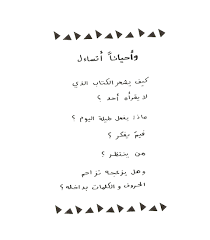 وأحياناً أتساءل
كيف يشعر الكتاب الذي
لا يقرأه أحد ؟
ماذا يفعل طيلة اليوم ؟
فيمَ يفكر ؟
من ينتظر ؟
وهل يزعجه تزاحم
الحروف والكلمات بداخله ؟